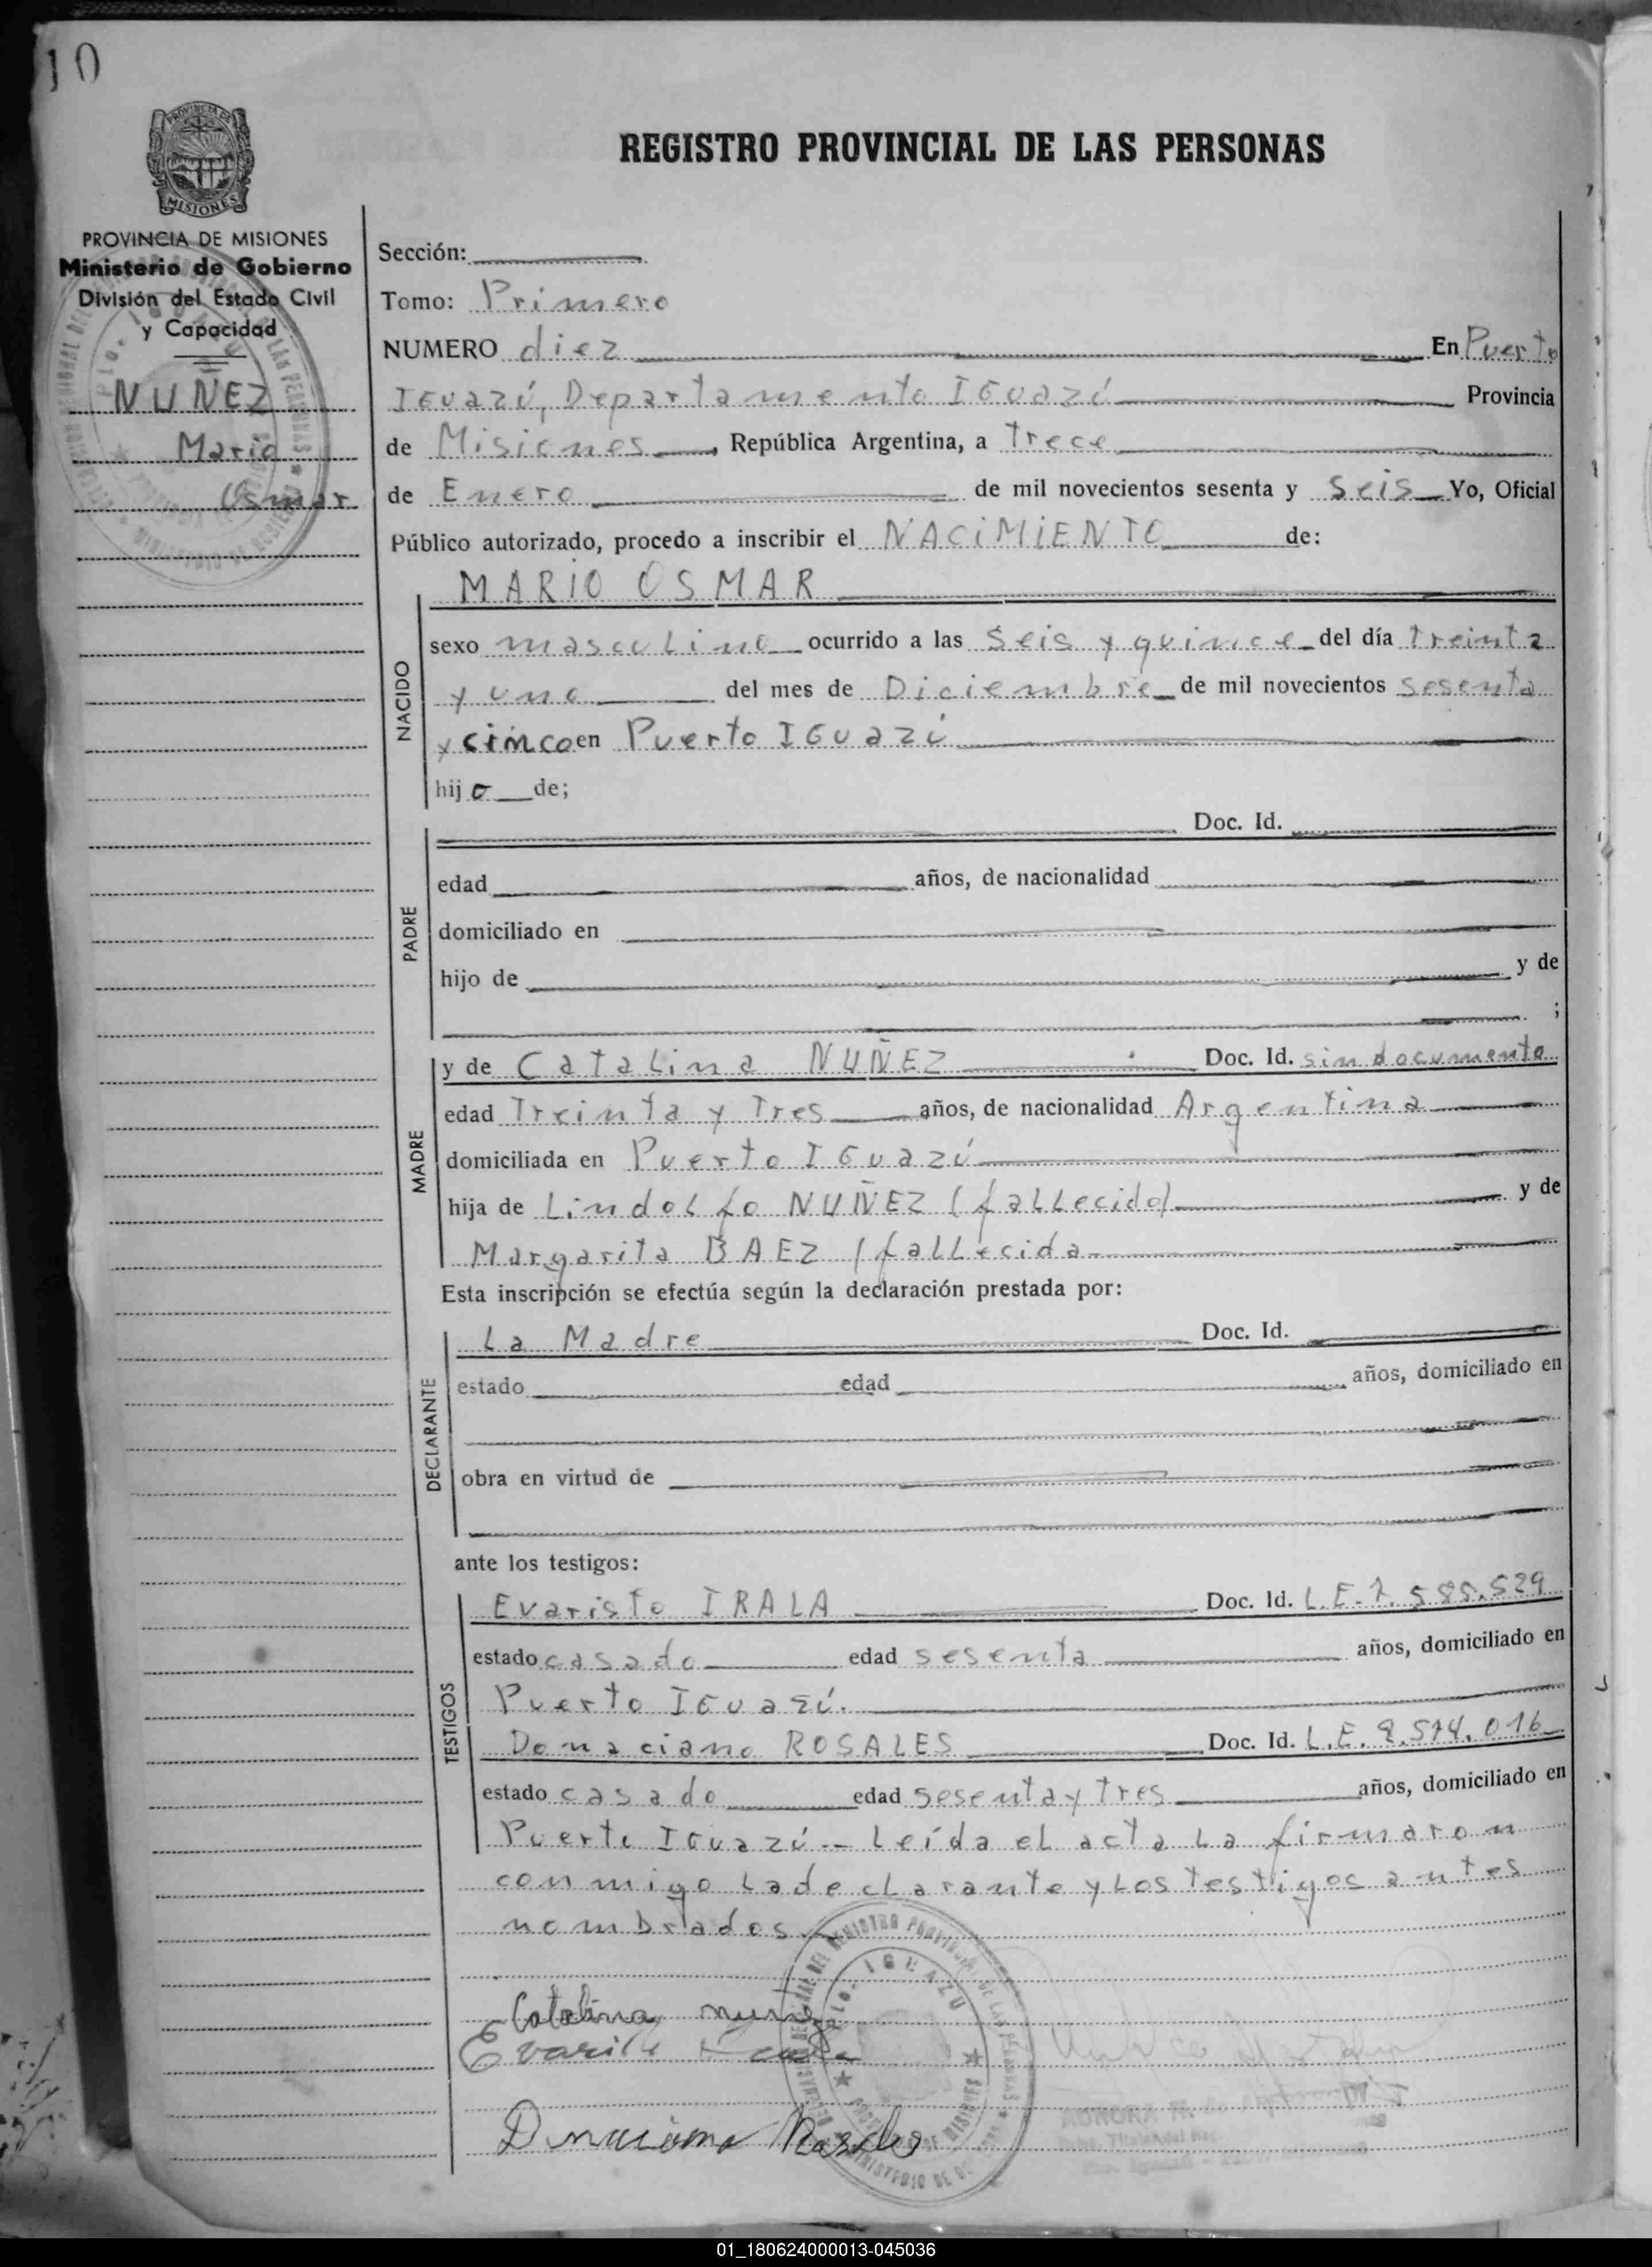 10
PROVINCIA DE MISIONES
REGISTRO PROVINCIAL DE LAS PERSONAS
PROVINCIA DE MISIONES
Ministerio de Gobierno
División del Estado Civil
y Capacidad
NUÑEZ
Mario
Osmar
Sección:
Tomo: Primero
NUMERO diez En Puerto
IGuazú, Departamento IGuazú Provincia
de Misiones, República Argentina, a Trece
de Enero de mil novecientos sesenta y Seis Yo, Oficial
Público autorizado, procedo a inscribir el NACIMIENTO de:
NACIDO
MARIO OSMAR
sexo masculino ocurrido a las Seis y quince del día Treinta
y uno del mes de Diciembre de mil novecientos sesenta
y cinco en Puerto IGuazú
hijo de;
PADRE
Doc. Id.
edad años, de nacionalidad
domiciliado en
hijo de y de
;
MADRE
y de Catalina NUÑEZ Doc. Id. sin documento
edad Treinta y Tres años, de nacionalidad Argentina
domiciliada en Puerto IGuazú
hija de Lindolfo NUÑEZ (fallecido) y de
Margarita BAEZ (fallecida
Esta inscripción se efectúa según la declaración prestada por:
DECLARANTE
La Madre Doc. Id.
estado edad años, domiciliado en
obra en virtud de
ante los testigos:
TESTIGOS
Evaristo IRALA Doc. Id. L.E. 585.529
estado casado edad sesenta años, domiciliado en
Puerto IGuazú.
Donaciano ROSALES Doc. Id. L.E. 016
estado casado edad sesenta y tres años, domiciliado en
Puerto IGuazú-- Leída el acta La firmaron
conmigo La declarante y Los testigos antes
nombrados
Pto. IGUAZU
Catalina nuñez
Evaristo
Donaciano Rosales
AURORA
01_180624000013-045036